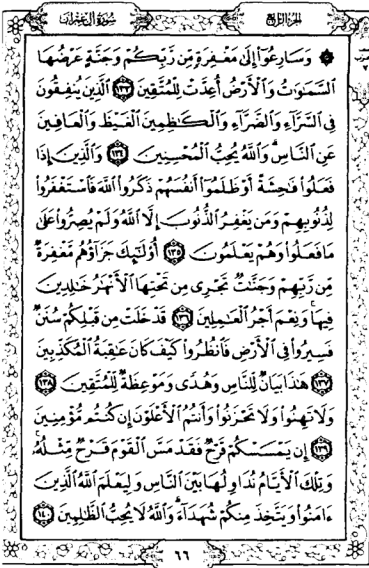 الجزء الرابع
سورة آل عمران
۞ وَسَارِعُوٓاْ إِلَىٰ مَغْفِرَةٍ مِّن رَّبِّكُمْ وَجَنَّةٍ عَرْضُهَا
ٱلسَّمَٰوَٰتُ وَٱلْأَرْضُ أُعِدَّتْ لِلْمُتَّقِينَ ١٣٣ ٱلَّذِينَ يُنفِقُونَ
فِي ٱلسَّرَّآءِ وَٱلضَّرَّآءِ وَٱلْكَٰظِمِينَ ٱلْغَيْظَ وَٱلْعَافِينَ
عَنِ ٱلنَّاسِ وَٱللَّهُ يُحِبُّ ٱلْمُحْسِنِينَ ١٣٤ وَٱلَّذِينَ إِذَا
فَعَلُواْ فَٰحِشَةً أَوْ ظَلَمُوٓاْ أَنفُسَهُمْ ذَكَرُواْ ٱللَّهَ فَٱسْتَغْفَرُواْ
لِذُنُوبِهِمْ وَمَن يَغْفِرُ ٱلذُّنُوبَ إِلَّا ٱللَّهُ وَلَمْ يُصِرُّواْ عَلَىٰ
مَا فَعَلُواْ وَهُمْ يَعْلَمُونَ ١٣٥ أُوْلَٰٓئِكَ جَزَآؤُهُم مَّغْفِرَةٌ
مِّن رَّبِّهِمْ وَجَنَّٰتٌ تَجْرِي مِن تَحْتِهَا ٱلْأَنْهَٰرُ خَٰلِدِينَ
فِيهَا وَنِعْمَ أَجْرُ ٱلْعَٰمِلِينَ ١٣٦ قَدْ خَلَتْ مِن قَبْلِكُمْ سُنَنٌ
فَسِيرُواْ فِي ٱلْأَرْضِ فَٱنظُرُواْ كَيْفَ كَانَ عَٰقِبَةُ ٱلْمُكَذِّبِينَ
١٣٧ هَٰذَا بَيَانٌ لِّلنَّاسِ وَهُدًى وَمَوْعِظَةٌ لِّلْمُتَّقِينَ ١٣٨
وَلَا تَهِنُواْ وَلَا تَحْزَنُواْ وَأَنتُمُ ٱلْأَعْلَوْنَ إِن كُنتُم مُّؤْمِنِينَ
١٣٩ إِن يَمْسَسْكُمْ قَرْحٌ فَقَدْ مَسَّ ٱلْقَوْمَ قَرْحٌ مِّثْلُهُۥ
وَتِلْكَ ٱلْأَيَّامُ نُدَاوِلُهَا بَيْنَ ٱلنَّاسِ وَلِيَعْلَمَ ٱللَّهُ ٱلَّذِينَ
ءَامَنُواْ وَيَتَّخِذَ مِنكُمْ شُهَدَآءَ وَٱللَّهُ لَا يُحِبُّ ٱلظَّٰلِمِينَ ١٤٠
٦٦